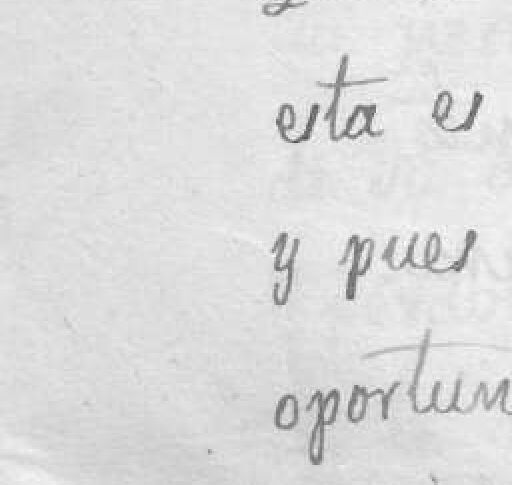 esta es
y pues
oportun